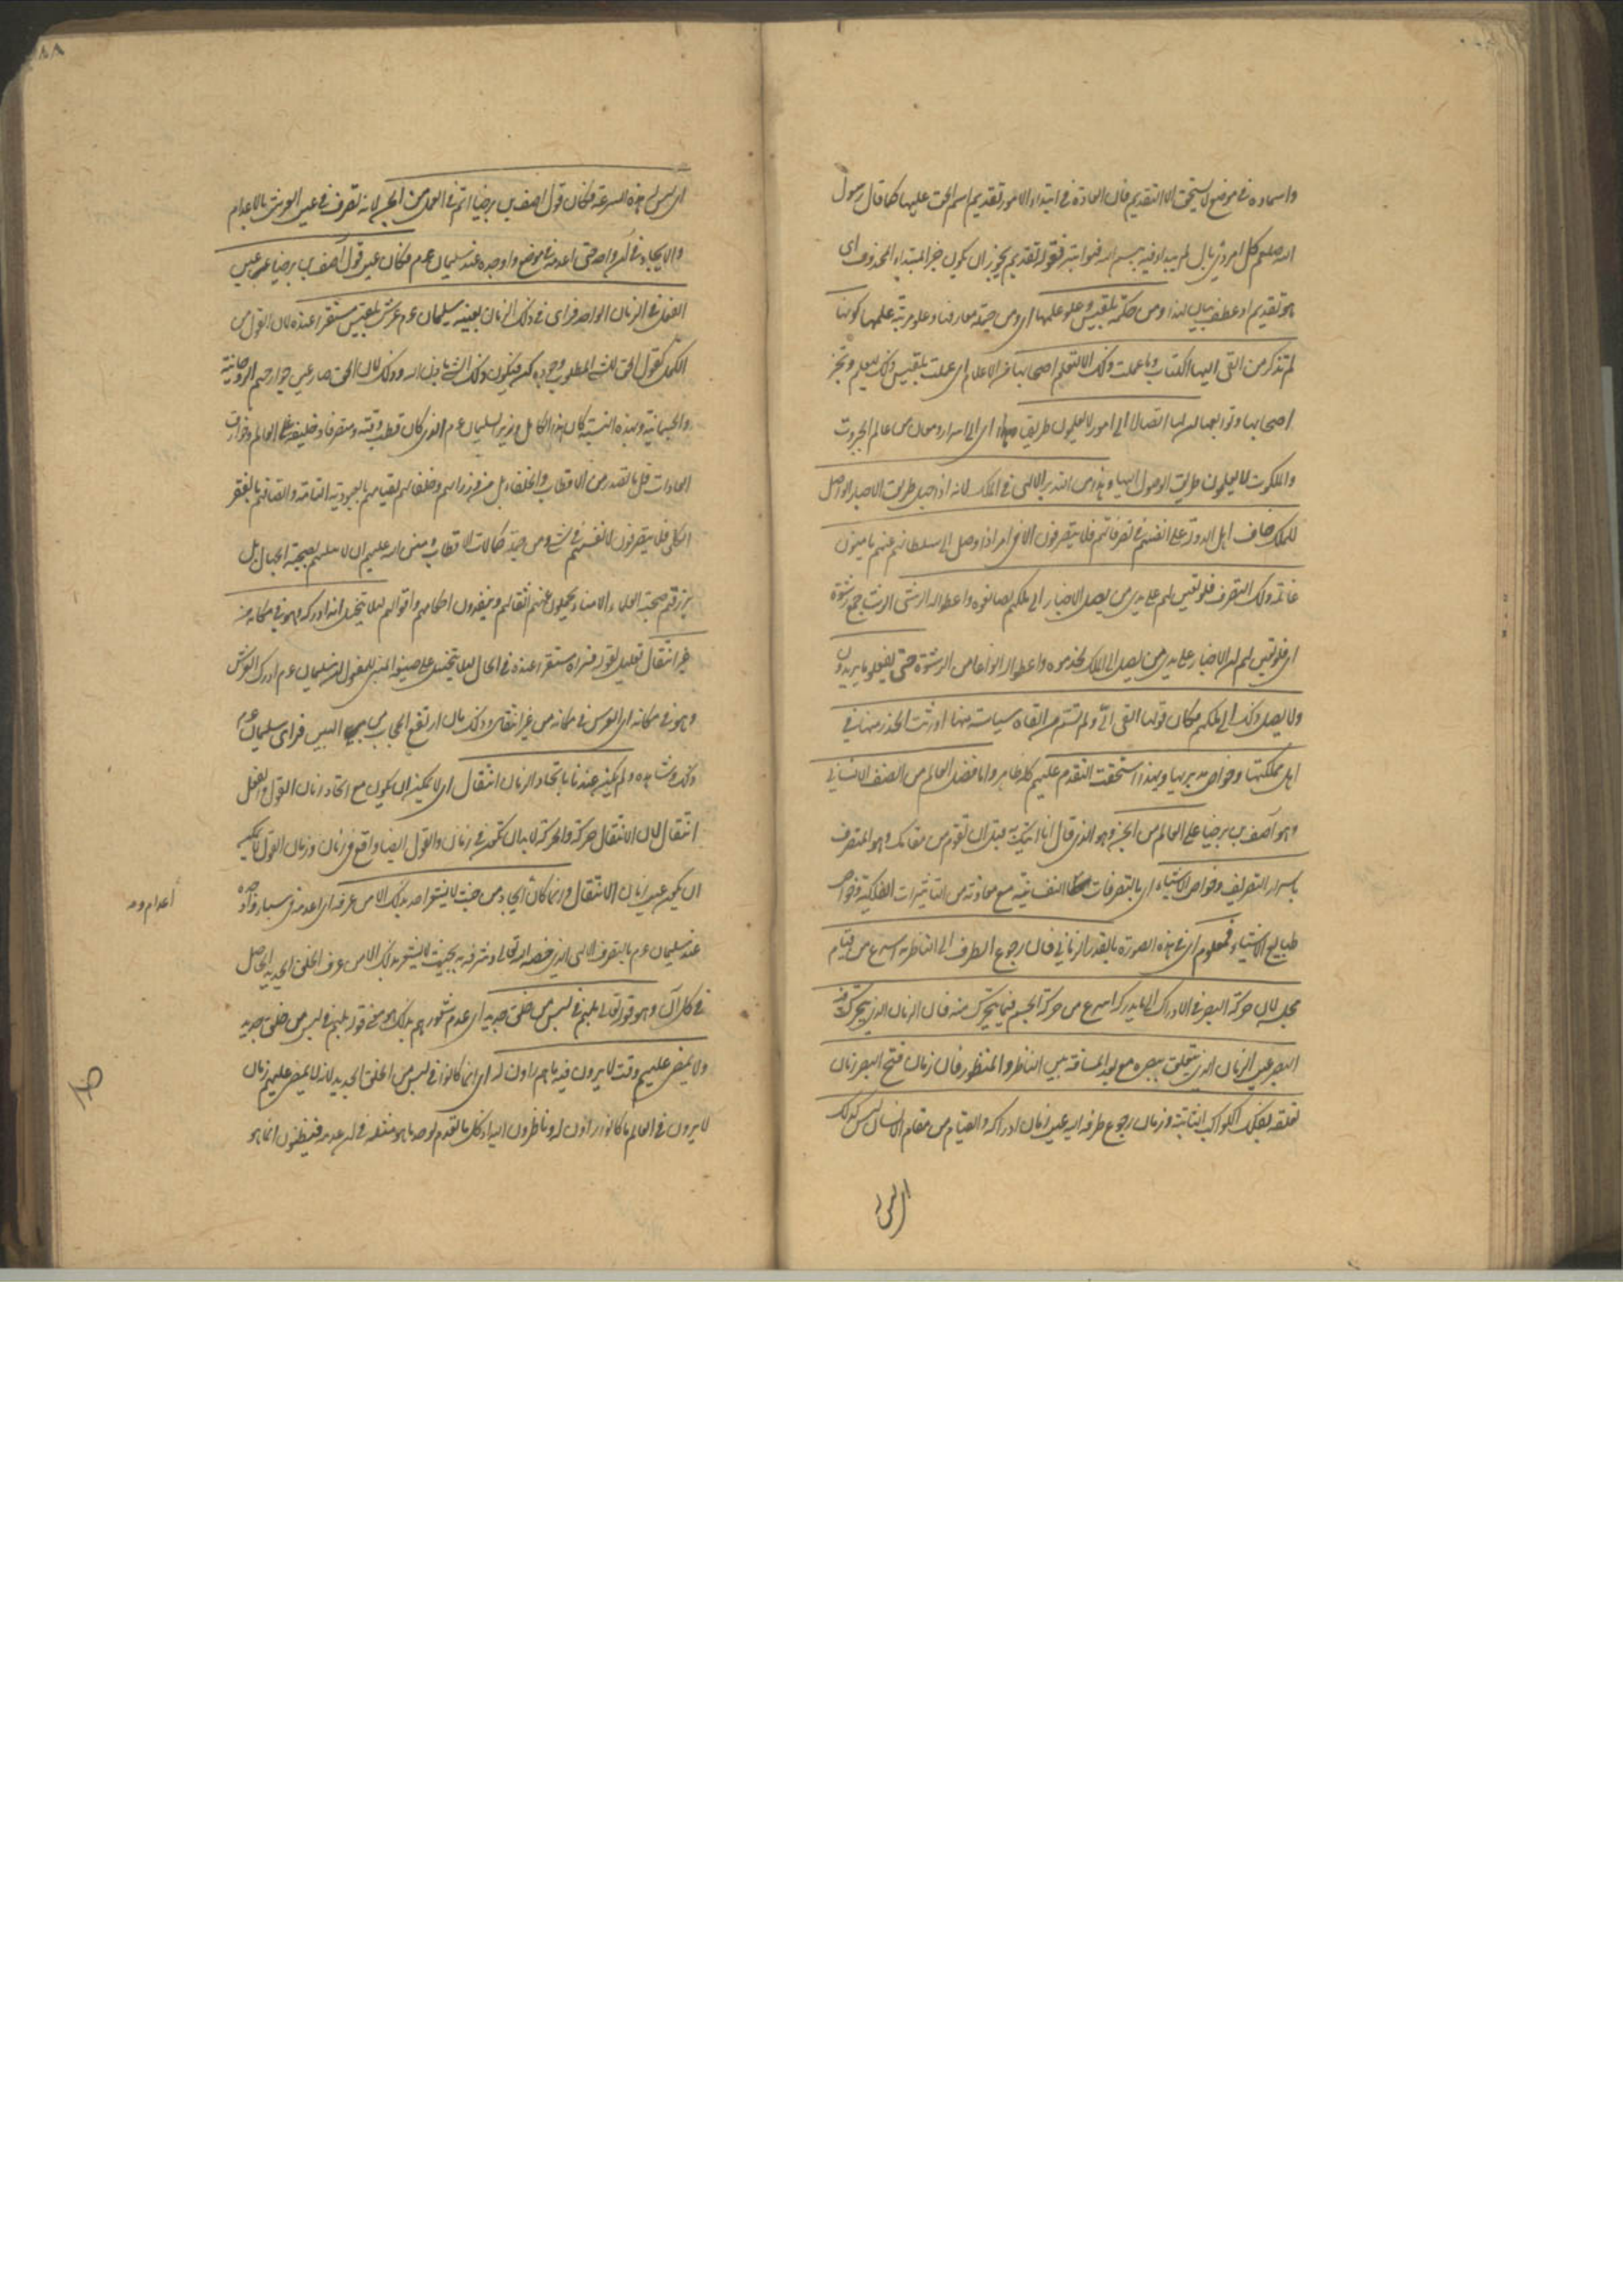 واسماءه في موضع لا يستحق الا التقديم فان العادة في ابتداء الامور تقديم اسم الحق عليها كما قال رسول
الله صلعم كل امر ذي بال لم يبدا فيه ببسم الله فهو ابتر فقوله تقديم يجوز ان يكون خبر المبتداء المحذوف اي
هو تقديم او عطف بيان لهذا ومن حكمة بلقيس وعلو علمها اي ومن جملة معارفها وعلو مرتبة علمها كونها
لم تذكر من القى اليها الكتاب وما عملت ذلك الا لتعلم اصحابها من الاعلام اي عملت بلقيس ذلك ليعلم
اصحابها ان لها اتصالا الى امور لا يعلمون طريقها اي الى اسرار ومعان من عالم الجبروت
والملكوت لا يعلمون طريق الوصول اليها وهذا من التدبير الالهي في الملك لانه اذا جهل طريق الاخبار الواصل
للملك خاف اهل الدولة على انفسهم في تصرفاتهم فلا يتصرفون الا في امر اذا وصل الى سلطانهم عنهم يامنون
غائلة ذلك التصرف فلو تعين لهم على يدي من يصل الاخبار الى ملكهم لصانعوه واعطوا له الرشى الرشى جمع رشوة
اي فلو تعين لهم ان الاخبار على يد من يصل الى الملك لخدموه واعطوا له انواعا من الرشوة حتى يفعلوا ما يريدون
ولا يصل ذلك الى ملكهم فكان قولها القي الي ولم تسم من القاه سياسة منها اورثت الحذر منها في
اهل مملكتها وخواص مدبريها وبهذا استحقت التقدم عليهم كله ظاهر واما فضل العالم من الصنف الانساني
وهو آصف بن برخيا على العالم من الجن وهو الذي قال انا اتيك به قبل ان تقوم من مقامك وهو المتصرف
باسرار التصريف وخواص الاشياء اي بالتصرفات النفسانية مع معاونة من التاثيرات الفلكية وخواص
طبايع الاشياء فمعلوم اي في هذه الصورة بالقدر الزماني فان رجوع الطرف الى الناظر به اسرع من قيام
مجلسه لان حركة البصر في الادراك الى ما يدركه اسرع من حركة الجسم فيما يتحرك منه فان الزمان الذي يتحرك فيه
البصر عين الزمان الذي يتعلق ببصره مع بعد المسافة بين الناظر والمنظور فان زمان فتح البصر زمان
تعلقه بفلك الكواكب الثابتة وزمان رجوع طرفه اليه عين زمان ادراكه والقيام من مقام الانسان ليس كذلك
اي ليس له
اي ليس له هذه السرعة فكان قول آصف بن برخيا اتم في العمل من الجن لانه تصرف في عين العرش بالاعدام
والايجاد في آن واحد حتى اعدمه في موضعه واوجده عند سليمان عم فكان عين قول آصف بن برخيا عين
الفعل في الزمان الواحد فراى في ذلك الزمان بعينه سليمان عم عرش بلقيس مستقرا عنده لان القول من
الكمل كقول الحق للشيء المطلوب وجوده كن فيكون ذلك الشيء باذن الله وذلك لان الحق صار عين جوارحهم الروحانية
والجسمانية وبهذه النسبة كان هذا الكامل وزيرا لسليمان عم الذي كان قطب وقته ومتصرفا وخليفة على العالم وخوارق
العادات قل ما تصدر من الاقطاب والخلفاء بل من وزرائهم وخلفائهم لقيامهم بالعبودية التامة واتصافهم بالفقر
الكلي فلا يتصرفون لانفسهم في شيء ومن جملة كمالات الاقطاب ومنن الله عليهم ان لا يبتليهم بصحبة الجهال بل
يرزقهم صحبة العلماء الامناء يحملون عنهم اثقالهم وينفذون احكامهم واقوالهم لئلا يتخيل انه ادركه وهو في مكانه من
غير انتقال تعليل لقوله فراه مستقرا عنده في الحال لئلا يتخيل على صيغة المبني للمفعول ان سليمان عم ادرك العرش
وهو في مكانه اي العرس في مكانه من غير انتقال وذلك بان ارتفع الحجاب من البين فراى سليمان عم
ذلك وشاهده ولم يكن عندنا باتحاد الزمان انتقال اي لا يمكن ان يكون مع اتحاد زمان القول والفعل
انتقال لان الانتقال حركة والحركة لا بد ان تكون في زمان والقول ايضا واقع في زمان وزمان القول لا يمكن
ان يكون عين زمان الانتقال وانما كان ايجاد من حيث لا يشعر احد بذلك الا من عرفه اي اعدمه في سبا واوجده
عند سليمان عم بالتصرف الالهي الذي خصه الله تعالى وشرفه به بحيث لا يشعر بذلك الا من عرف الخلق الجديد الحاصل
في كل آن وهو قوله تعالى بل هم في لبس من خلق جديد اي عدم شعورهم بذلك هو معنى قوله بل هم في لبس من خلق جديد
ولا يمضي عليهم وقت لا يرون فيه ما هم راؤن له اي انما كانوا في لبس من الخلق الجديد لانه لا يمضي عليهم زمان
لا يرون في العالم ما كانوا رائون له وناظرون اليه اذ كل ما تقدم يوجد ما هو مثله في آن عدمه فيظنون ان ما هو
اعدام و